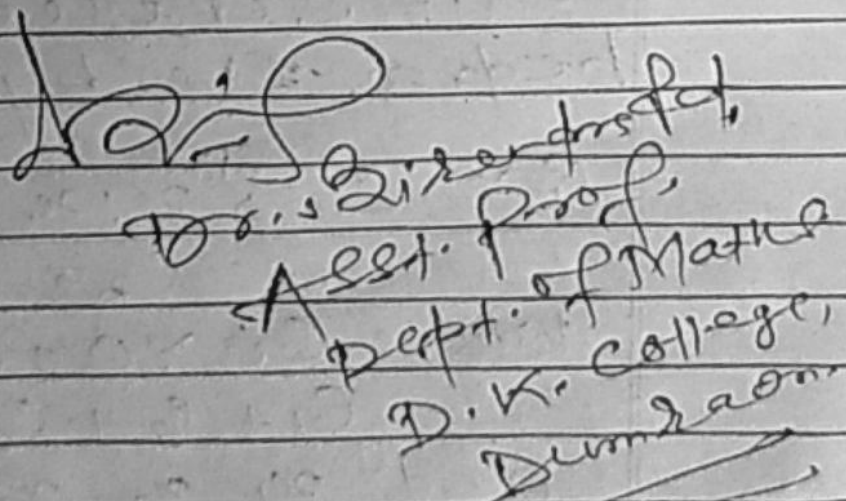 Dr.
Asst. Prof.
Dept. of Maths
D. K. College,
Dumraon.